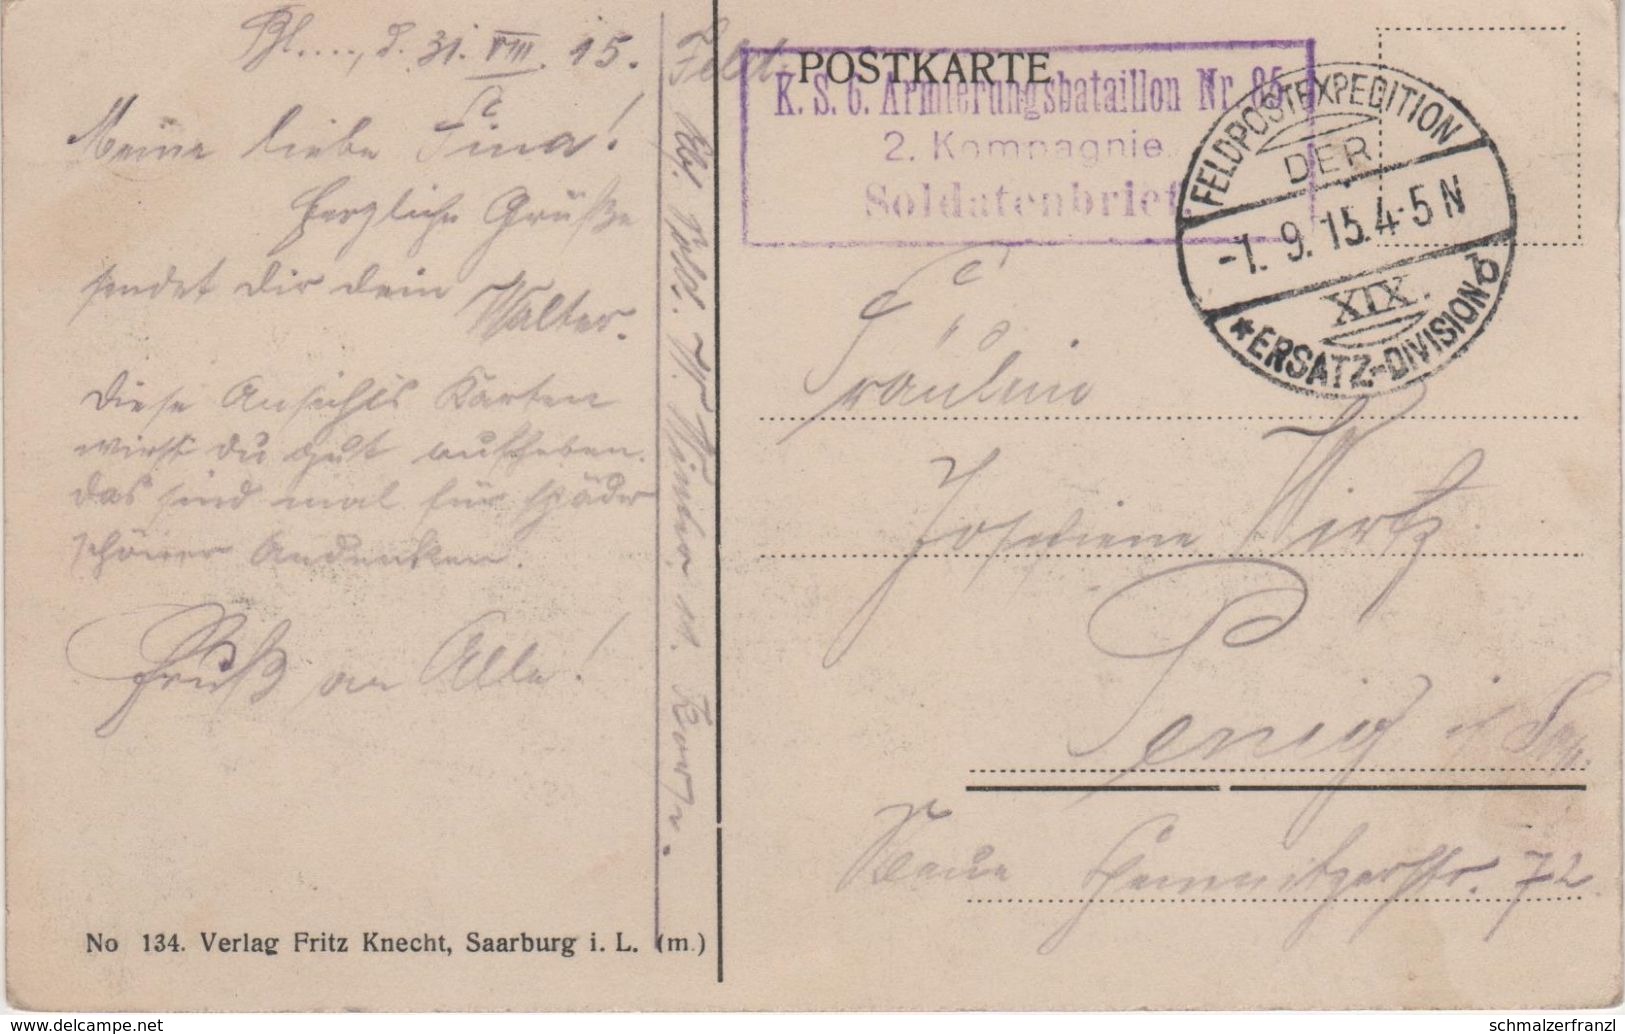 Bl...., d. 31. VIII. 15.
Meine liebe Tina!
Herzliche Grüße
sendet dir dein
Walter.
Diese Ansichts Karten
wirst du gut aufheben.
das sind mal für späder
schöner Andenken.
Gruß an Alle!
Feld.
Abs. Sold. W.
No 134. Verlag Fritz Knecht, Saarburg i. L. (m.)
POSTKARTE
K. S. 6. Armierungsbataillon Nr. 85
2. Kompagnie.
Soldatenbrief
FELDPOSTEXPEDITION
DER
-1. 9. 15. 4-5 N
XIX.
* ERSATZ-DIVISION b
Fräulein
Josefiene Wirtz
Penig i/ Sa.
Neue Chemnitzerstr. 72.
www.delcampe.net
schmalzerfranzl